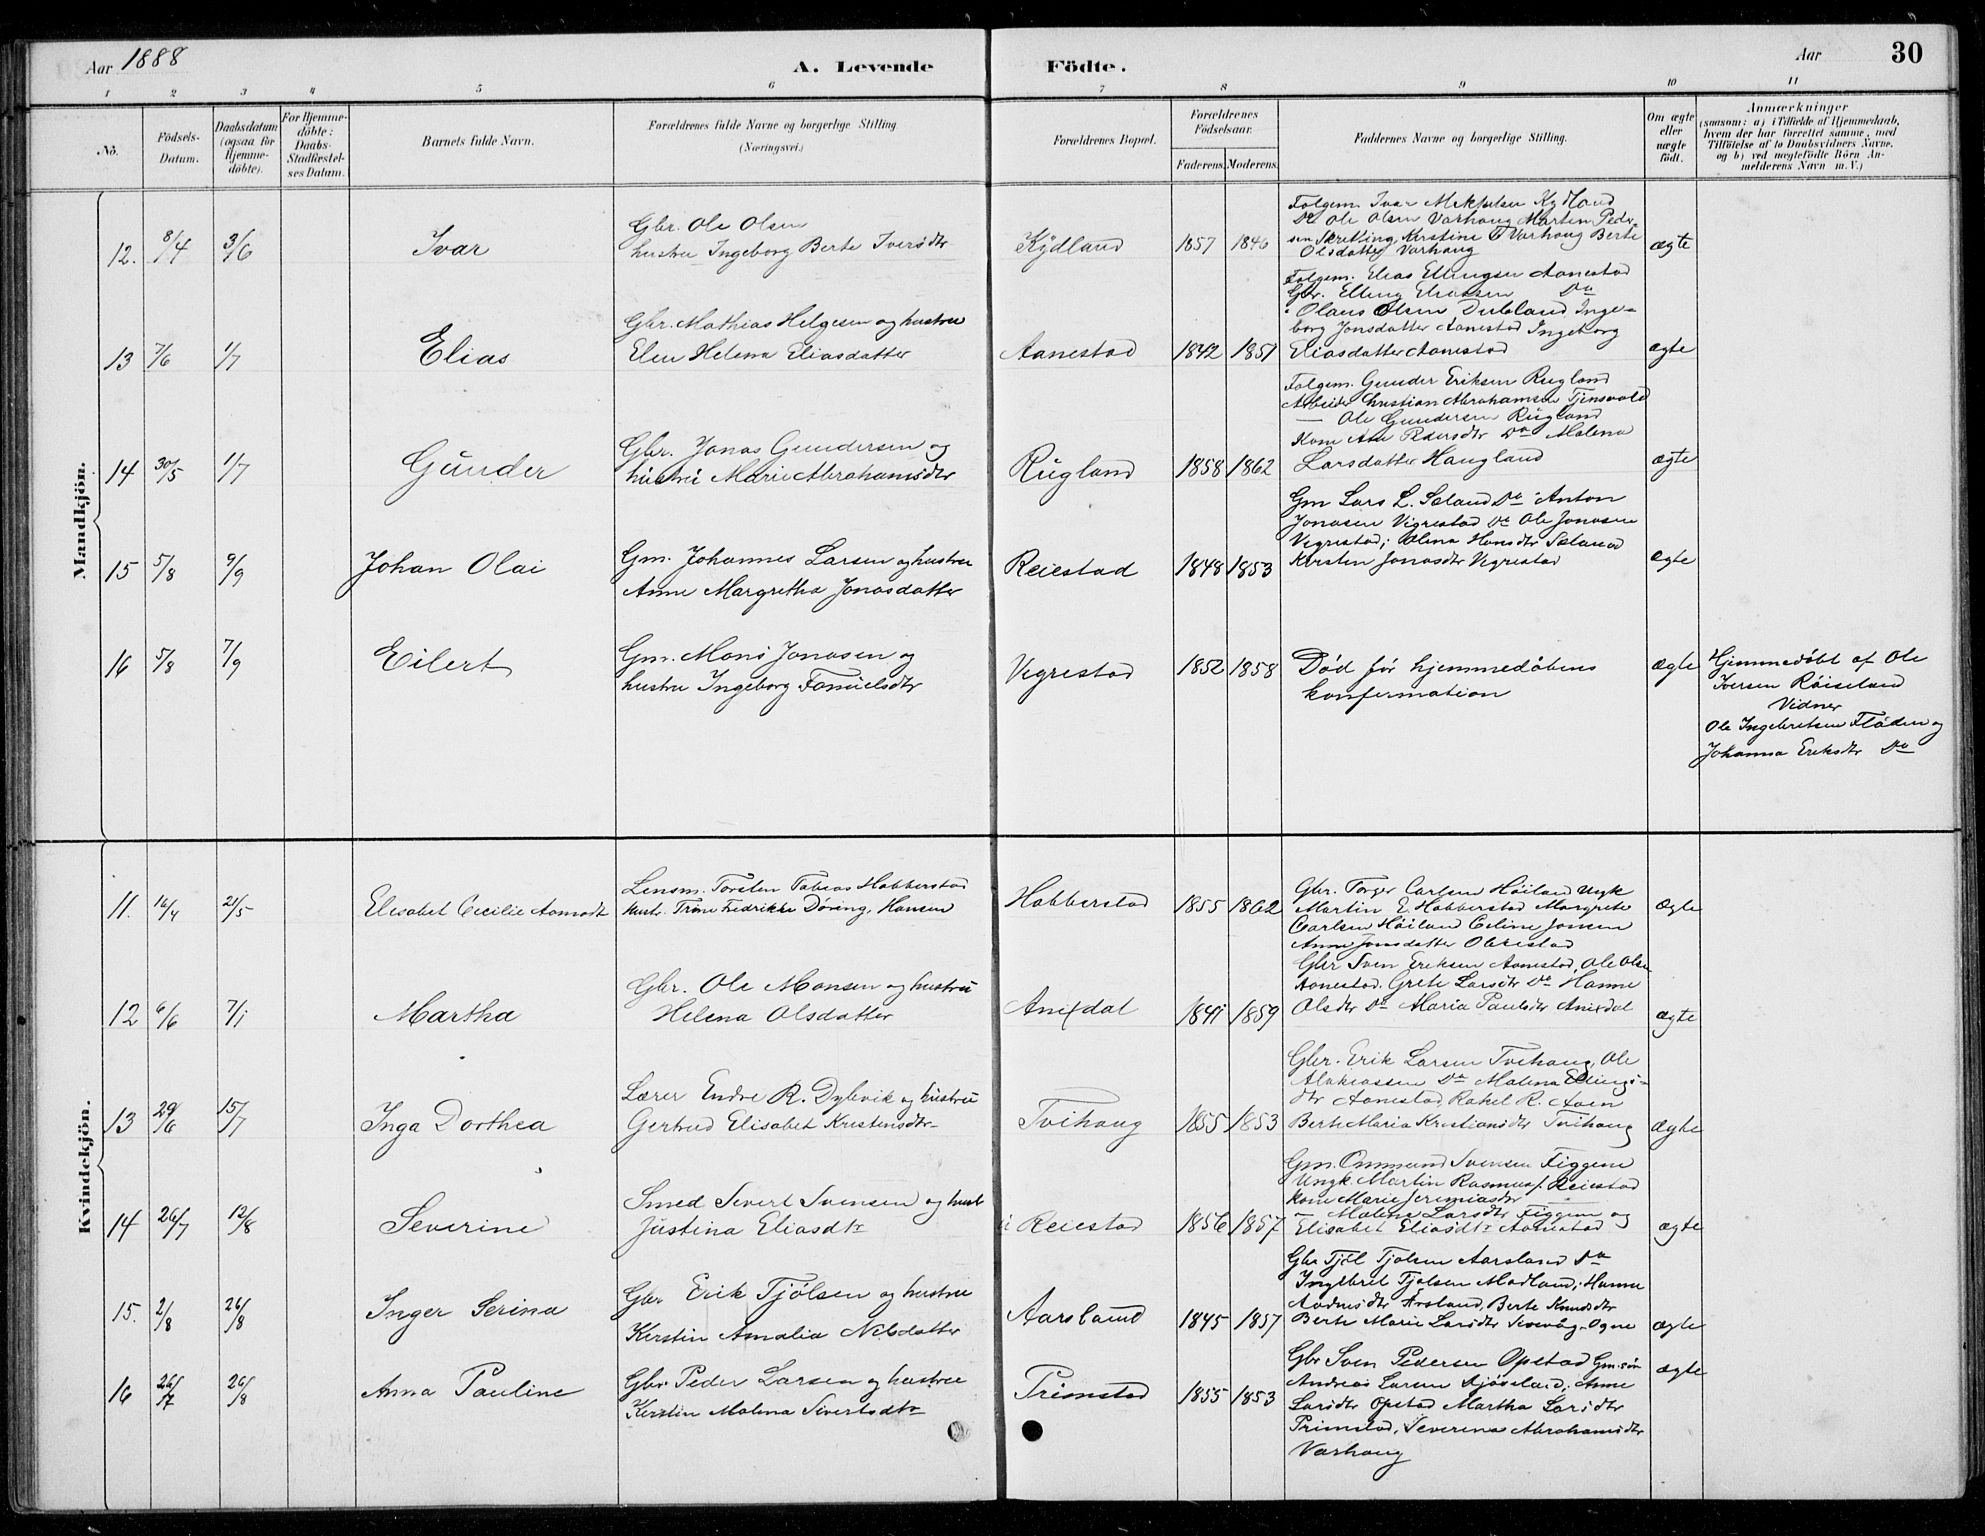 Aar 1888
A. Levende
Födte.
Aar
30
1 2 3 4 5 6 7 8 9 10 11
No.
Födsels-
Datum.
Daabsdatum
(ogsaa for
Hjemme-
döbte).
For Hjemme-
döbte:
Daabs-
Stadfæstel-
ses Datum.
Barnets fulde Navn.
Forældrenes fulde Navne og borgerlige Stilling
(Næringsvei.)
Forældrenes Bopæl.
Forældrenes
Födselsaar.
Faderens. Moderens.
Faddernes Navne og borgerlige Stilling.
Om ægte
eller
uægte
født.
Anmærkninger
(saasom: a) i Tilfælde af Hjemmedaab,
hvem der har forrettet samme, med
Tilföielse af to Daabsvidners Navne,
og b) ved uægtefödte Börn An-
melderens Navn m. V.)
Mandkjön.
12. 8/4 3/6
Ivar
Gbr. Ole Olsen
hustru Ingeborg Berte Iversdtr
Kydland
1857 1846
Folgem. Ivar Mikkelsen Kydland
Do Ole Olsen Varhaug Martin Peder-
sen Skretting, Kerstine T Varhaug Berte
Olsdatter Varhaug
ægte
13 7/6 1/7
Elias
Gbr. Mathias Helgesen og hustru
Elen Helena Eliasdatter
Aanestad
1842 1851
Folgem. Elias Ellingsen Aanestad
Gbr. Elling Eliassen Do
Olaus Olsen Dubland Inge-
borg Jonsdatter Aanestad Ingeborg
Eliasdatter Aanestad
ægte
14 30/5 1/7
Gunder
Gbr. Jonas Gundersen og
hustru Marie Abrahamsdtr
Rugland
1858 1862
Folgem. Gunder Eriksen Rugland
Arbeider Christian Abrahamsen Tjensvold
— Ole Gundersen Rugland
Kone Ane Pedersdtr Do Malena
Larsdatter Haugland
ægte
15 5/8 9/9
Johan Olai
Gm. Johannes Larsen og hustru
Anne Margretha Jonasdatter
Reiestad
1848 1853
Gm Lars L. Sæland Do Anton
Jonasen Vigrestad Do Ole Jonasen
Vigrestad; Olena Hansdtr Sæland
Kirsten Jonasdtr Vigrestad
ægte
16 5/8 7/9
Eilert
Gm. Mons Jonasen og
hustru Ingeborg Samuelsdtr
Vigrestad
1852 1858
Død før hjemmedåbens
konfermation
ægte
Hjemmedöbt af Ole
Iversen Röiseland
Vidner
Ole Ingebretsen Flöden og
Johanna Eriksdtr Do
Kvindekjön.
11. 16/4 21/5
Elisabet Cecilie Aamodt
Lensm. Torsten Tobias Hobberstad
hust. Trine Fredrikke Døring, Hansen
Hobberstad
1855 1862
Gbr. Torger Carlsen Höiland Ungk
Martin E. Hobberstad Margrete
Carlsen Höiland Celine Jonsen
Anne Jonsdatter Obrestad
ægte
12 6/6 7/1
Martha
Gbr. Ole Monsen og hustru
Helena Olsdatter
Anixdal
1841 1859
Gbr Sven Eriksen Aanestad, Ole Olsen
Aanestad. Grete Larsdtr Do Hanne
Olsdtr Do Maria Paulsdtr Anixdal
ægte
13 29/6 15/7
Inga Dorthea
Lærer Endre R. Dybvik og hustru
Gertrud Elisabet Kristensdtr
Tvihaug
1855 1853
Gbr. Erik Larsen Tvihaug, Ole
Do Malena Ellings-
dtr Aanestad, Rakel R. Aaen
Berte Maria Kristiansdtr Tvihaug
ægte
14 26/7 12/8
Severine
Smed Sivert Svensen og hust
Justina Eliasdtr
Reiestad
1856 1857
Gm. Ommund Svensen Figgene
Ungk Martin Rasmusf. Reiestad
Kone Marie Jeremiasdtr
— Malene Larsdtr Figgen og
Elisabet Eliasdtr Aanestad
ægte
15. 2/8 26/8
Inger Serina
Gbr Erik Tjölsen og hustru
Kerstin Amalia Nilsdatter
Aarsland
1845 1857
Gbr Tjöl Tjolsen Aarsland Do
Ingebret Tjolsen Madland; Hanne
Aadnesdtr Årsland, Berte Knudsdtr
Berte Marie Larsdtr Ogne
ægte
16 26/7 26/8
Anna Pauline
Gbr Peder Larsen og hustru
Kerstin Malena Sivertsdtr
Primstad
1855 1853
Gbr Sven Pedersen Opstad Gm.søn
Andreas Larsen Njåveland, Anne
Larsdtr Opstad Martha Larsdtr
Primstad, Severena Abrahamsdtr
Varhaug
ægte